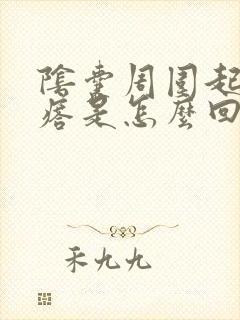 陰囊周圍起
痞是怎麼回
禾九九